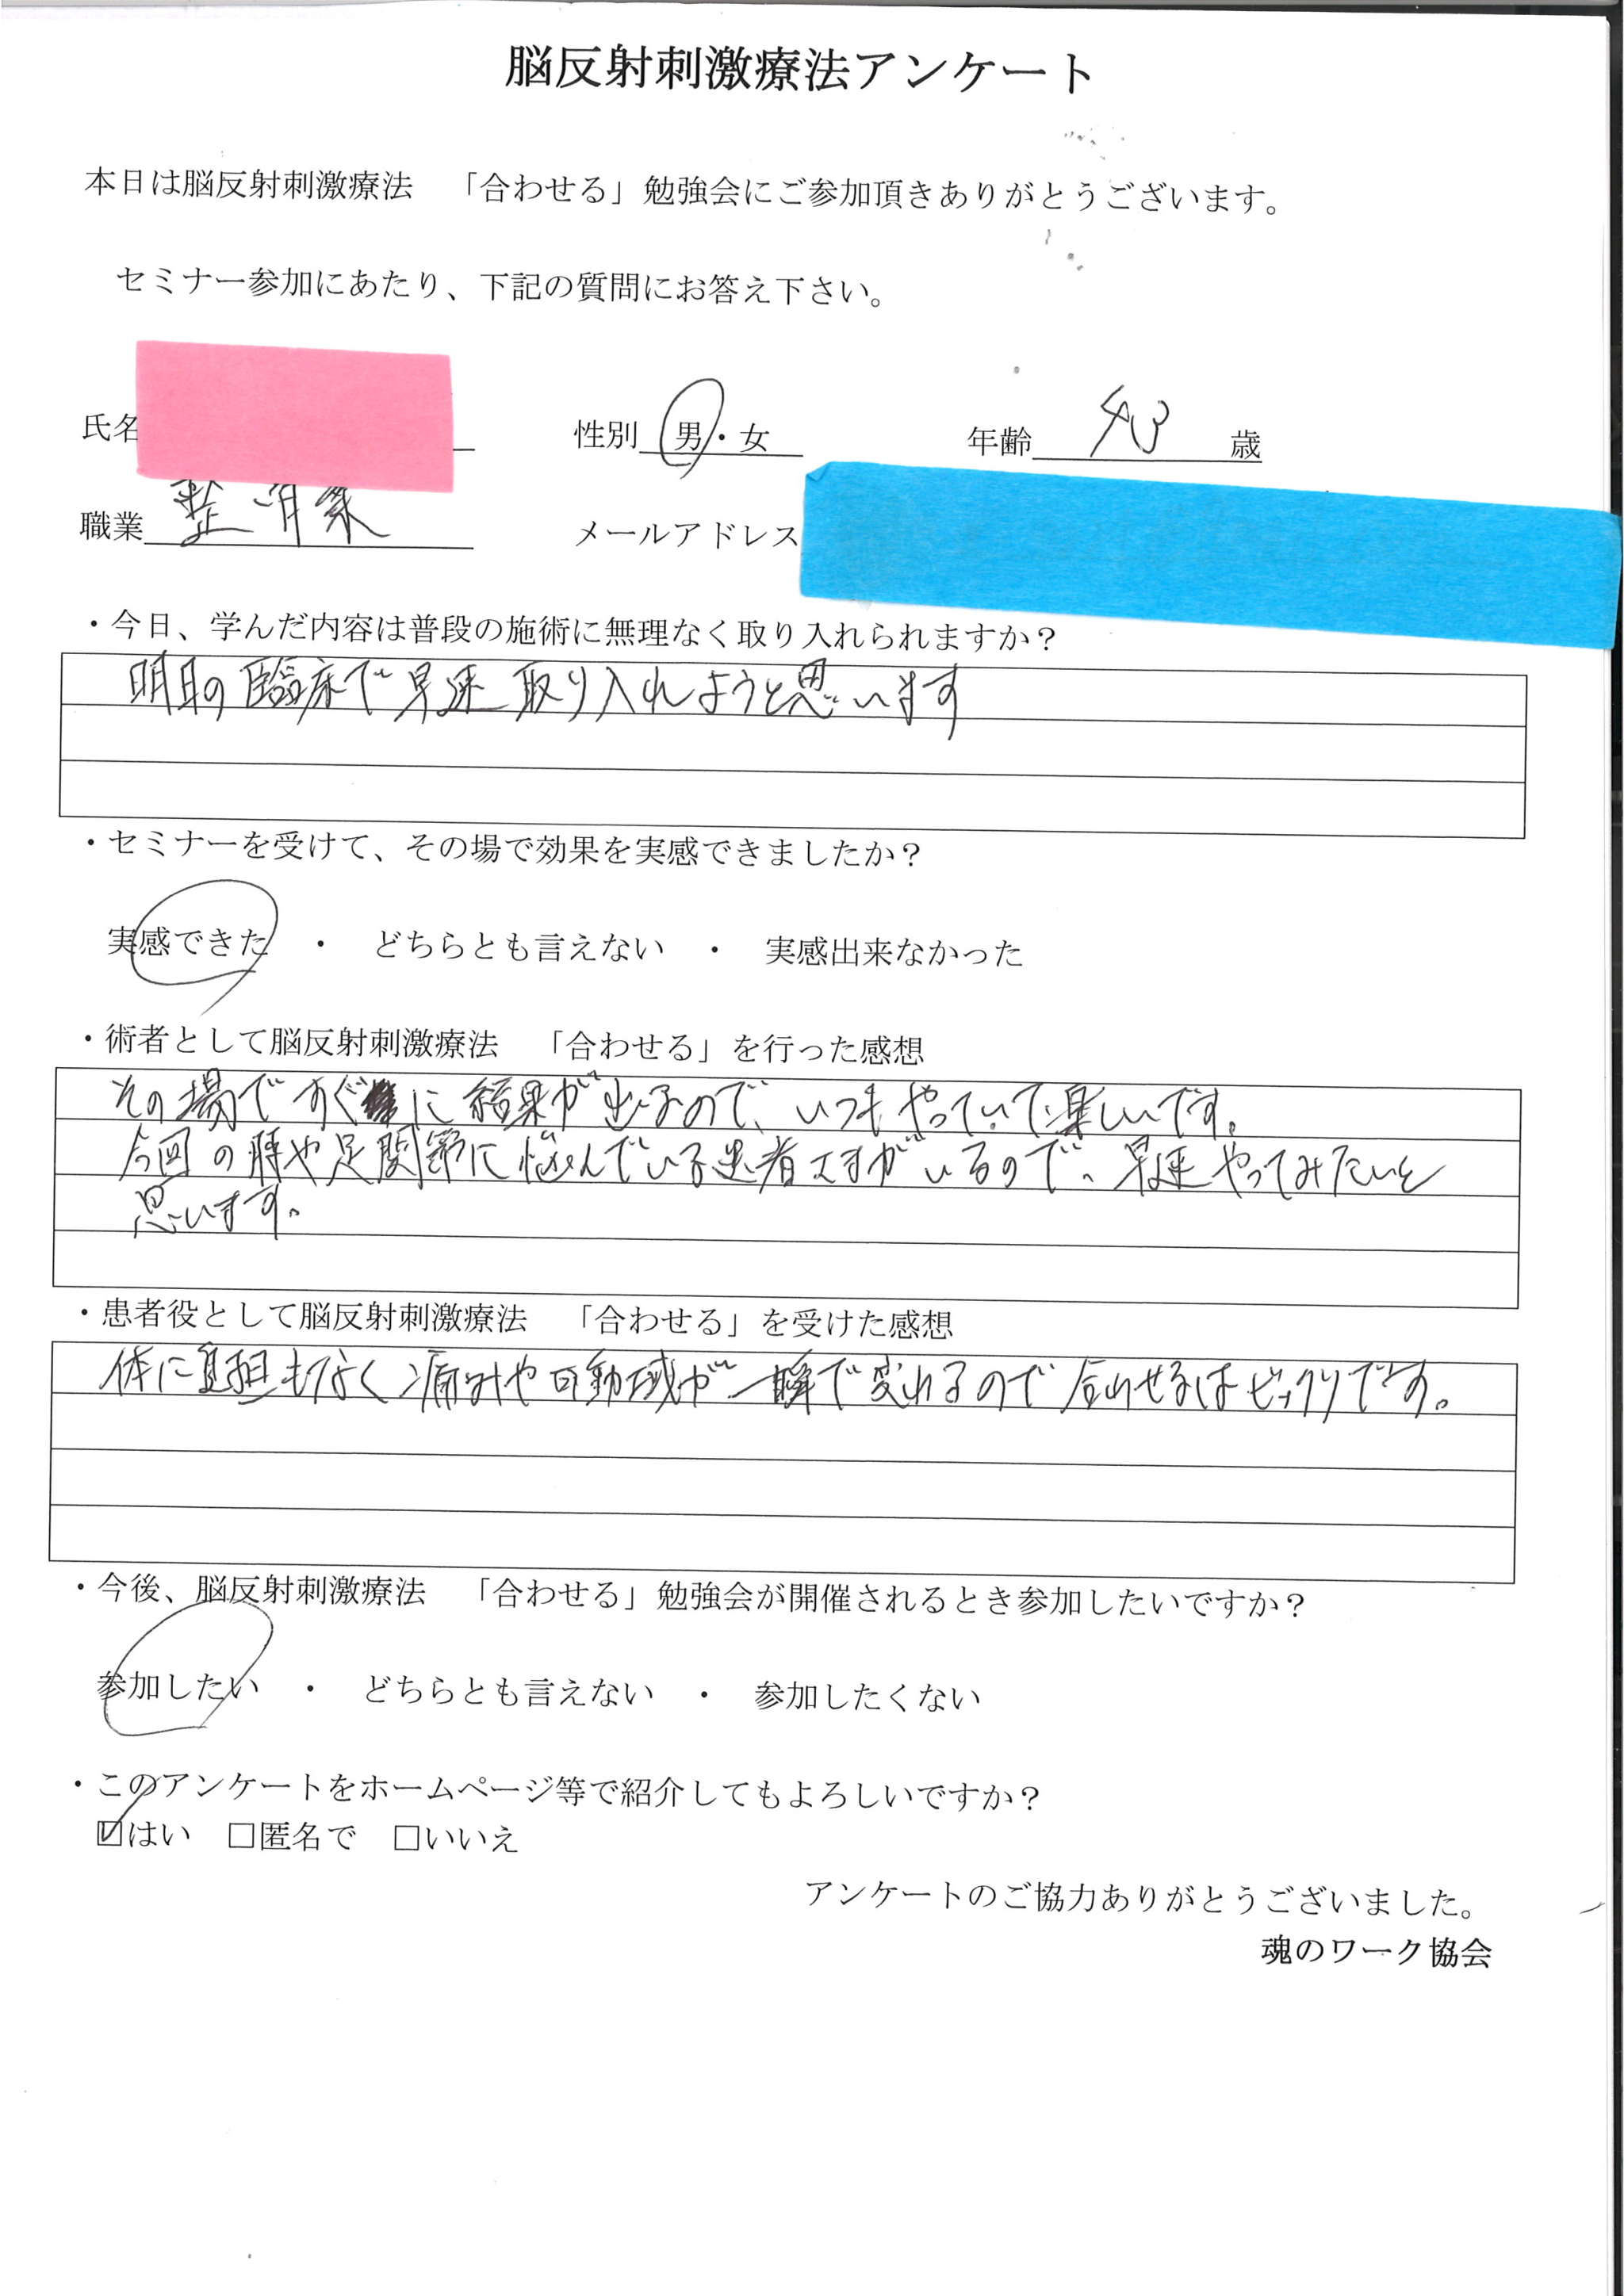 脳反射刺激療法アンケート
本日は脳反射刺激療法 「合わせる」勉強会にご参加頂きありがとうございます。
セミナー参加にあたり、下記の質問にお答え下さい。
氏名 性別 男・女 年齢 43 歳
職業 整体業 メールアドレス
・今日、学んだ内容は普段の施術に無理なく取り入れられますか？
明日の臨床で早速取り入れようと思います
・セミナーを受けて、その場で効果を実感できましたか？
実感できた ・ どちらとも言えない ・ 実感出来なかった
・術者として脳反射刺激療法 「合わせる」を行った感想
その場ですぐに結果が出るので、いつもやっていて楽しいです。
今回の肘や足関節に悩んでいる患者さまがいるので、早速やってみたいと
思います。
・患者役として脳反射刺激療法 「合わせる」を受けた感想
体に負担もなく痛みや可動域が一瞬で変れるので合わせるはビックリです。
・今後、脳反射刺激療法 「合わせる」勉強会が開催されるとき参加したいですか？
参加したい ・ どちらとも言えない ・ 参加したくない
・このアンケートをホームページ等で紹介してもよろしいですか？
☑はい □匿名で □いいえ
アンケートのご協力ありがとうございました。
魂のワーク協会